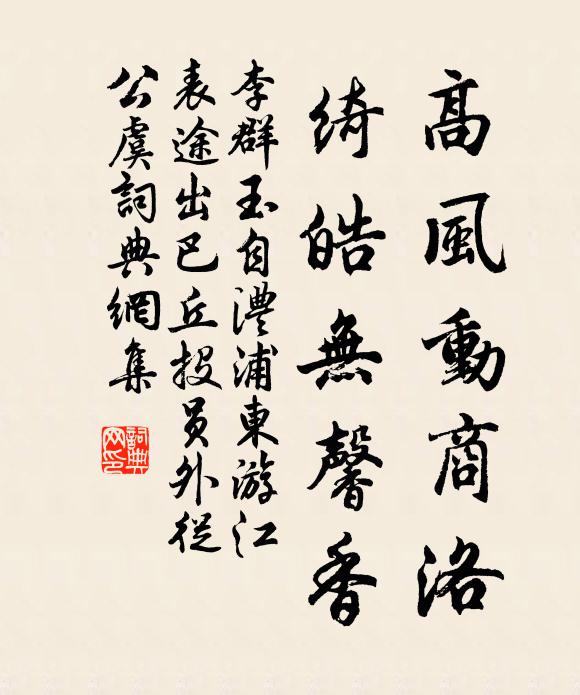 高風動商洛
綺皓無馨香
李群玉自澧浦東游江
表途出巴丘投员外從
公虞詞典網集
詞典
网印